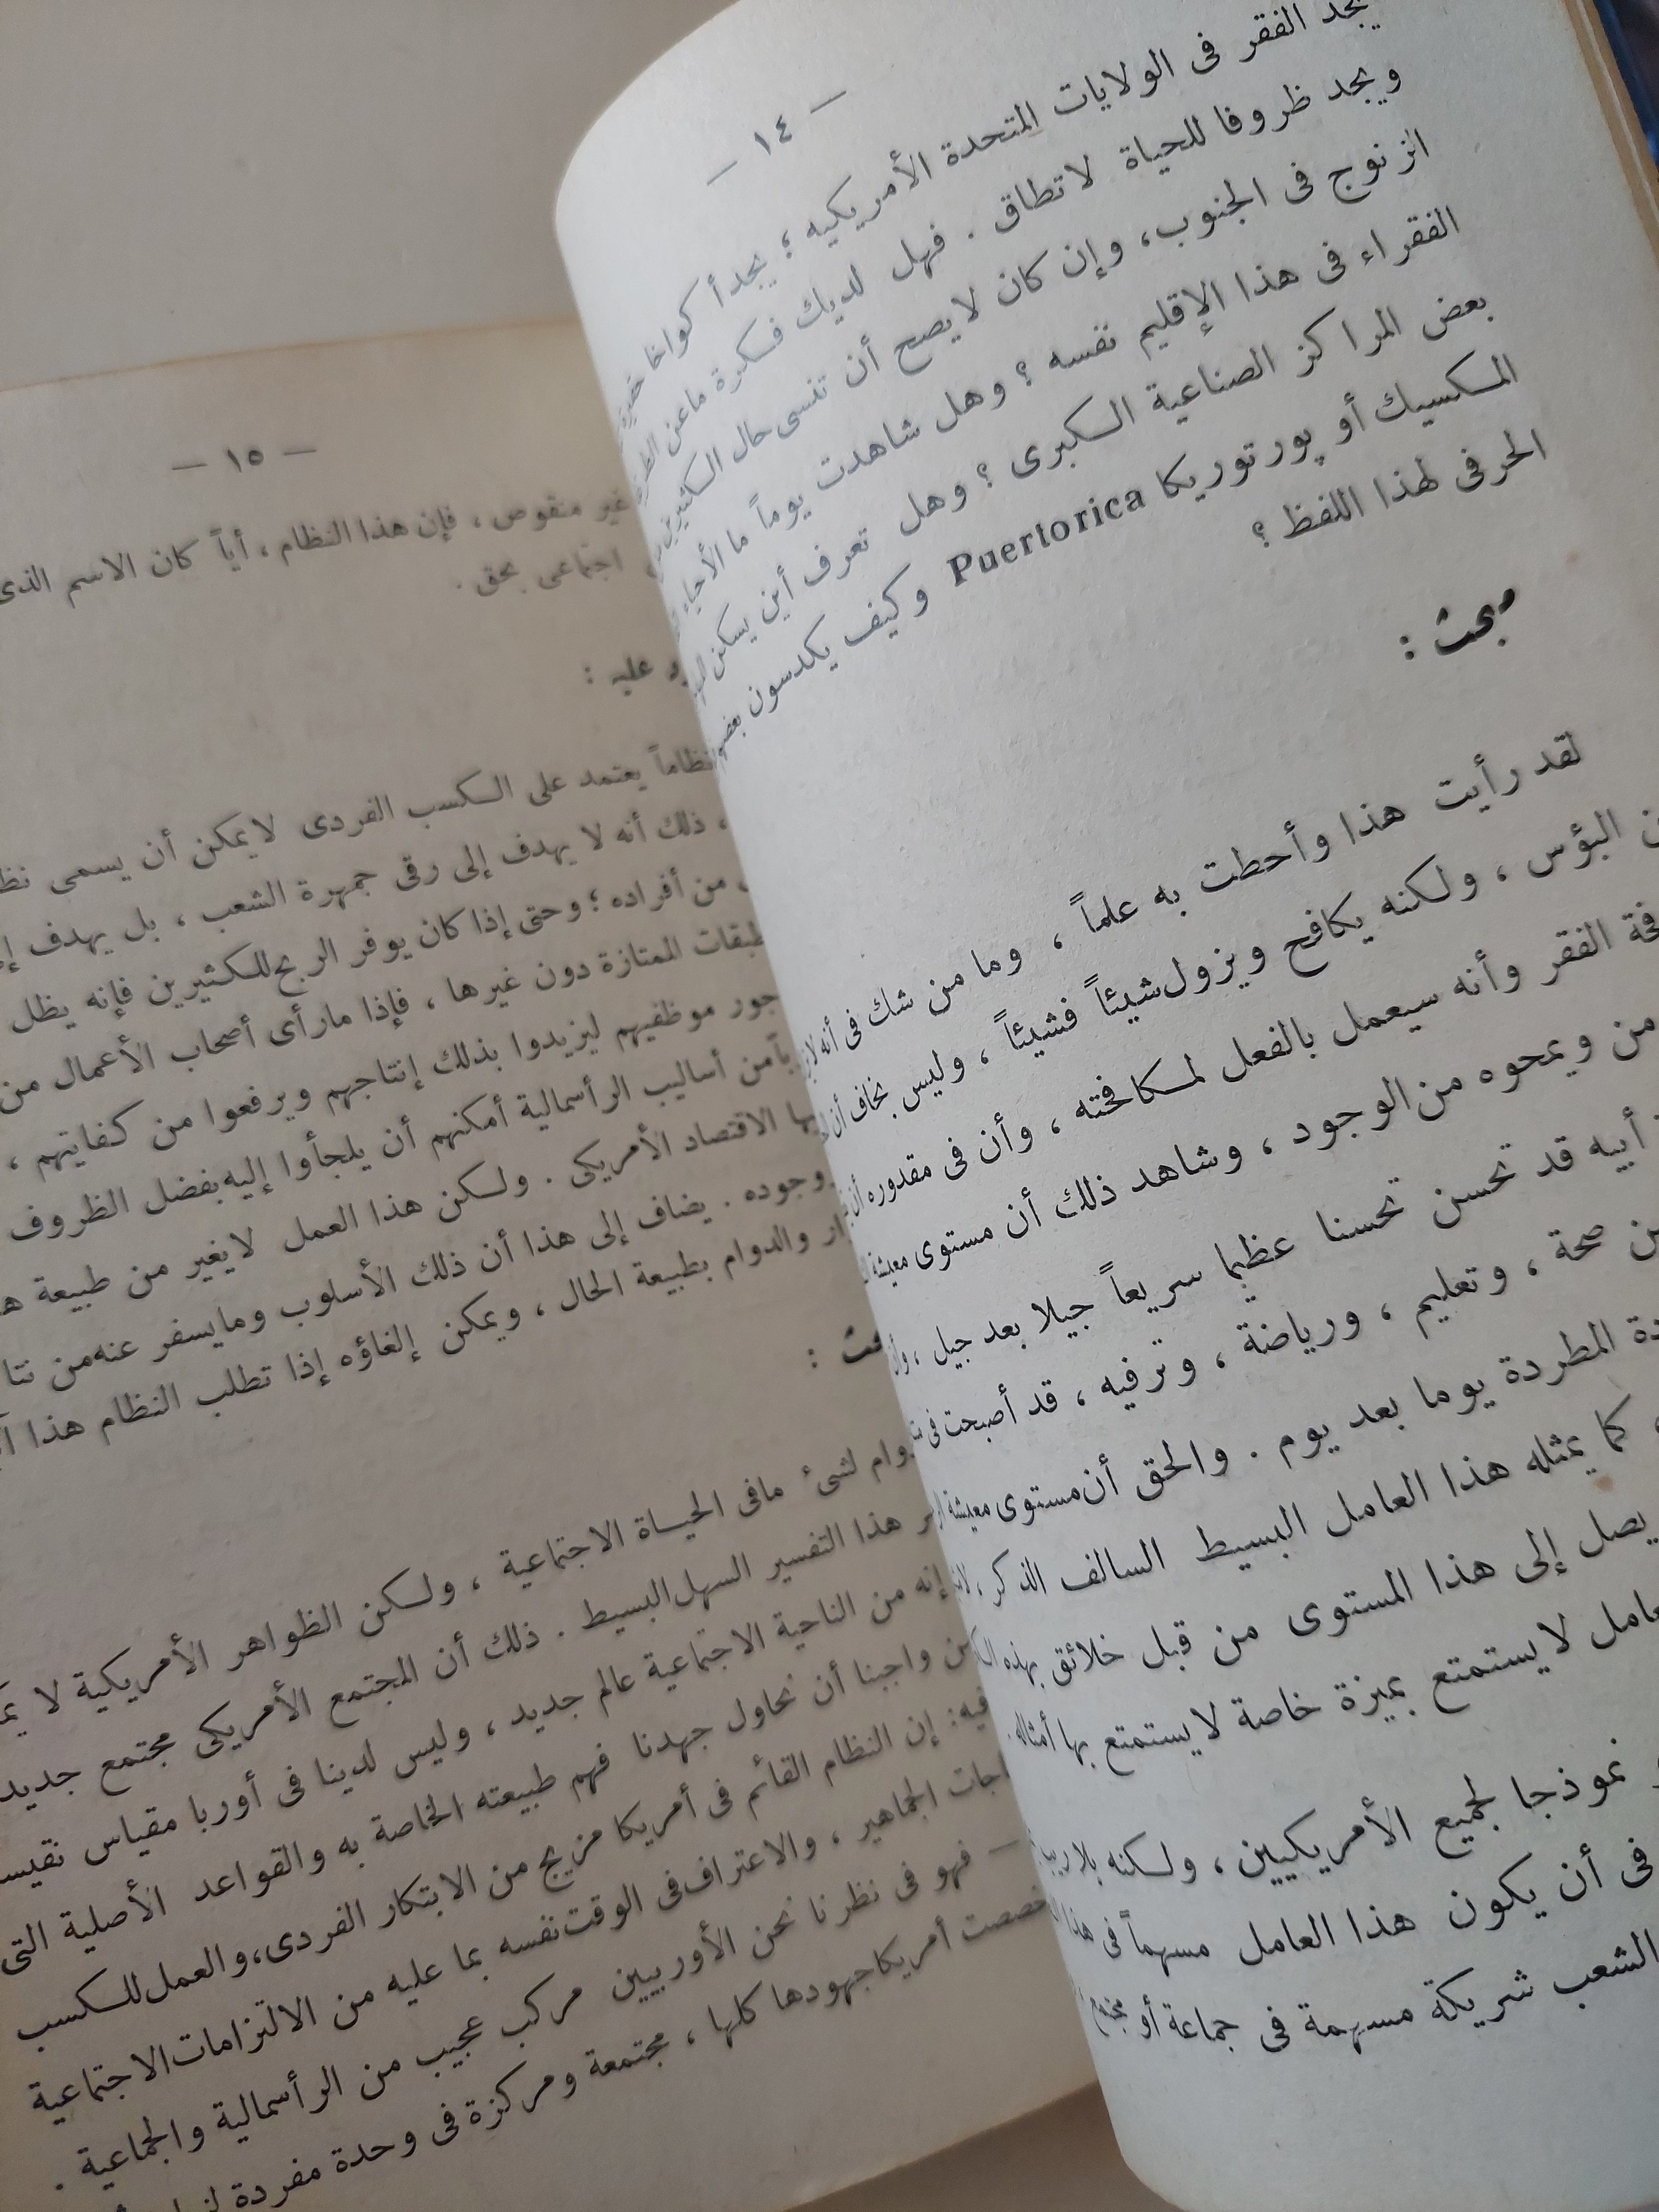 — ١٤ —
يجد الفقر فى الولايات المتحدة الأمريكيه ؛ يجد أكواخا حقيرة
ويجد ظروفا للحياة لا تطاق . فهل لديك فكرة ما عن
الزنوج فى الجنوب ، وإن كان لا يصح أن تنسى حال الكثيرين
الفقراء فى هذا الإقليم نفسه ؟ وهل شاهدت يوماً ما الأحياء
بعض المراكز الصناعية الكبرى ؟ وهل تعرف أين يسكن
المكسيك أو پورتوريكا Puertorica وكيف يكدسون
الحرفى لهذا اللفظ ؟
مبحث :
لقد رأيت هذا وأحطت به علماً ، وما من شك فى أنه
البؤس ، ولكنه يكافح ويزول شيئاً فشيئاً ، وليس بخاف أن
الفقر وأنه سيعمل بالفعل لمكافحته ، وأن فى مقدوره أن
من ويمحوه من الوجود ، وشاهد ذلك أن مستوى معيشة
أبيه قد تحسن تحسنا عظيما سريعاً جيلا بعد جيل ، وأن
صحة ، وتعليم ، ورياضة ، وترفيه ، قد أصبحت فى
المطردة يوما بعد يوم . والحق أن مستوى معيشة
كما يمثله هذا العامل البسيط السالف الذكر ،
يصل إلى هذا المستوى من قبل خلائق بهذه
لا يستمتع بميزة خاصة لا يستمتع بها أمثاله .
نموذجا لجميع الأمريكيين ، ولكنه بلا ريب
فى أن يكون هذا العامل مسهماً فى هذا
الشعب شريكة مسهمة فى جماعة أو مجتمع
— ١٥ —
غير منقوص ، فإن هذا النظام ، أياً كان الاسم الذى
اجتماعى بحق .
عليه :
نظاماً يعتمد على الكسب الفردى لا يمكن أن يسمى
، ذلك أنه لا يهدف إلى رقى جمهرة الشعب ، بل يهدف
من أفراده ؛ وحتى إذا كان يوفر الربح للكثيرين فإنه يظل
الممتازة دون غيرها ، فإذا ما رأى أصحاب الأعمال من
موظفيهم ليزيدوا بذلك إنتاجهم ويرفعوا من كفايتهم ،
من أساليب الرأسمالية أمكنهم أن يلجأوا إليه بفضل الظروف
الاقتصاد الأمريكى . ولكن هذا العمل لا يغير من طبيعة
وجوده . يضاف إلى هذا أن ذلك الأسلوب وما يسفر عنه من
والدوام بطبيعة الحال ، ويمكن إلغاؤه إذا تطلب النظام هذا
:
دوام لشىء ما فى الحياة الاجتماعية ، ولكن الظواهر الأمريكية لا
هذا التفسير السهل البسيط . ذلك أن المجتمع الأمريكى مجتمع جديد
إنه من الناحية الاجتماعية عالم جديد ، وليس لدينا فى أوربا مقياس
واجبنا أن نحاول جهدنا فهم طبيعته الخاصة به والقواعد الأصلية التى
فيه : إن النظام القائم فى أمريكا مزيج من الابتكار الفردى ، والعمل للكسب
الجماهير ، والاعتراف فى الوقت نفسه بما عليه من الالتزامات الاجتماعية
— فهو فى نظرنا نحن الأوربيين مركب عجيب من الرأسمالية والجماعية .
خصصت أمريكا جهودها كلها ، مجتمعة ومركزة فى وحدة مفردة